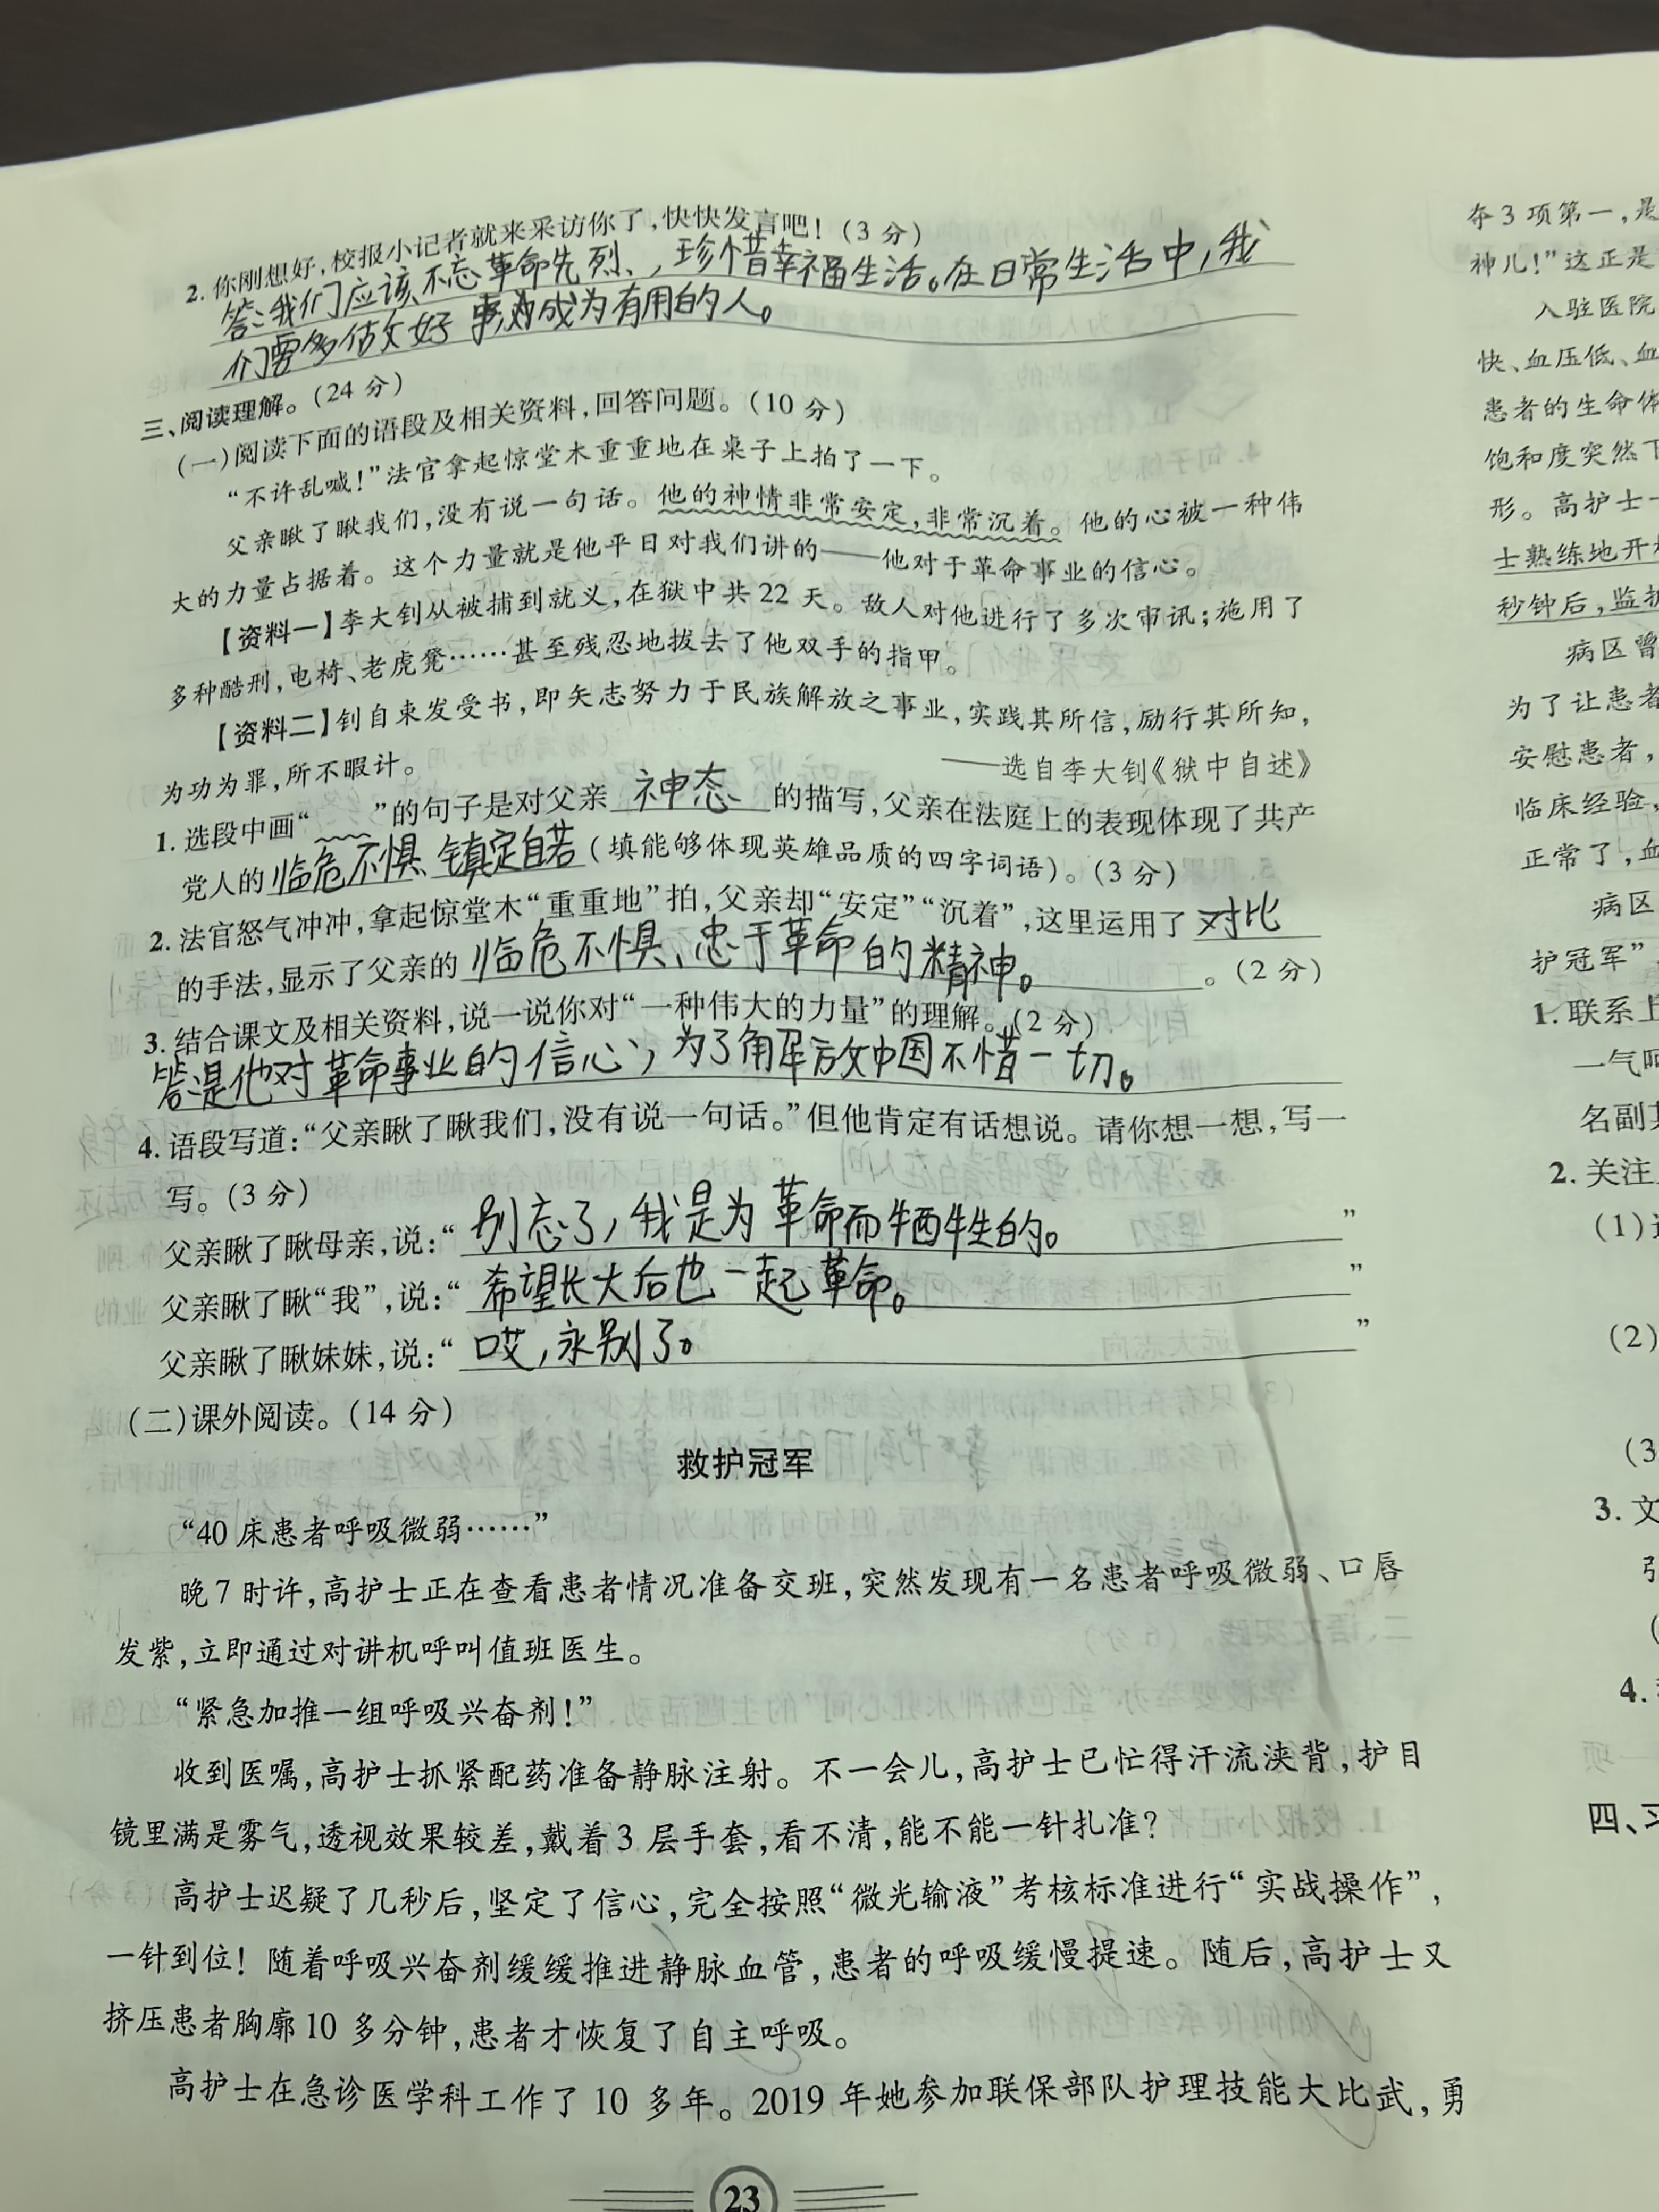 2. 你刚想好,校报小记者就来采访你了,快快发言吧!(3 分)
答:我们应该不忘革命先烈、,珍惜幸福生活。在日常生活中,我
们要多做好事,成为有用的人。
三、阅读理解。(24 分)
(一)阅读下面的语段及相关资料,回答问题。(10 分)
“不许乱喊!”法官拿起惊堂木重重地在桌子上拍了一下。
父亲瞅了瞅我们,没有说一句话。他的神情非常安定,非常沉着。他的心被一种伟
大的力量占据着。这个力量就是他平日对我们讲的——他对于革命事业的信心。
【资料一】李大钊从被捕到就义,在狱中共 22 天。敌人对他进行了多次审讯;施用了
多种酷刑,电椅、老虎凳……甚至残忍地拔去了他双手的指甲。
【资料二】钊自束发受书,即矢志努力于民族解放之事业,实践其所信,励行其所知,
为功为罪,所不暇计。
——选自李大钊《狱中自述》
1. 选段中画“ ”的句子是对父亲 神态 的描写,父亲在法庭上的表现体现了共产
党人的 临危不惧、镇定自若(填能够体现英雄品质的四字词语)。(3 分)
2. 法官怒气冲冲,拿起惊堂木“重重地”拍,父亲却“安定”“沉着”,这里运用了 对比
的手法,显示了父亲的 临危不惧、忠于革命的精神。 。(2 分)
3. 结合课文及相关资料,说一说你对“一种伟大的力量”的理解。(2 分)
答:是他对革命事业的信心,为了解放中国不惜一切。
4. 语段写道:“父亲瞅了瞅我们,没有说一句话。”但他肯定有话想说。请你想一想,写一
写。(3 分)
父亲瞅了瞅母亲,说:“ 别忘了,我是为革命而牺牲的。 ”
父亲瞅了瞅“我”,说:“ 希望长大后也一起革命。 ”
父亲瞅了瞅妹妹,说:“ 哎,永别了。 ”
(二)课外阅读。(14 分)
救护冠军
“40 床患者呼吸微弱……”
晚 7 时许,高护士正在查看患者情况准备交班,突然发现有一名患者呼吸微弱、口唇
发紫,立即通过对讲机呼叫值班医生。
“紧急加推一组呼吸兴奋剂!”
收到医嘱,高护士抓紧配药准备静脉注射。不一会儿,高护士已忙得汗流浃背,护目
镜里满是雾气,透视效果较差,戴着 3 层手套,看不清,能不能一针扎准?
高护士迟疑了几秒后,坚定了信心,完全按照“微光输液”考核标准进行“实战操作”,
一针到位!随着呼吸兴奋剂缓缓推进静脉血管,患者的呼吸缓慢提速。随后,高护士又
挤压患者胸廓 10 多分钟,患者才恢复了自主呼吸。
高护士在急诊医学科工作了 10 多年。2019 年她参加联保部队护理技能大比武,勇
23
夺 3 项第一,是
神儿!”这正是
入驻医院
快、血压低、血
患者的生命体
饱和度突然下
形。高护士
士熟练地开
秒钟后,监护
病区曾
为了让患者
安慰患者,
临床经验,
正常了,血
病区
护冠军”
1. 联系上
一气呵
名副其
2. 关注
(1)
(2)
(3
3. 文
引
(
4.
四、习